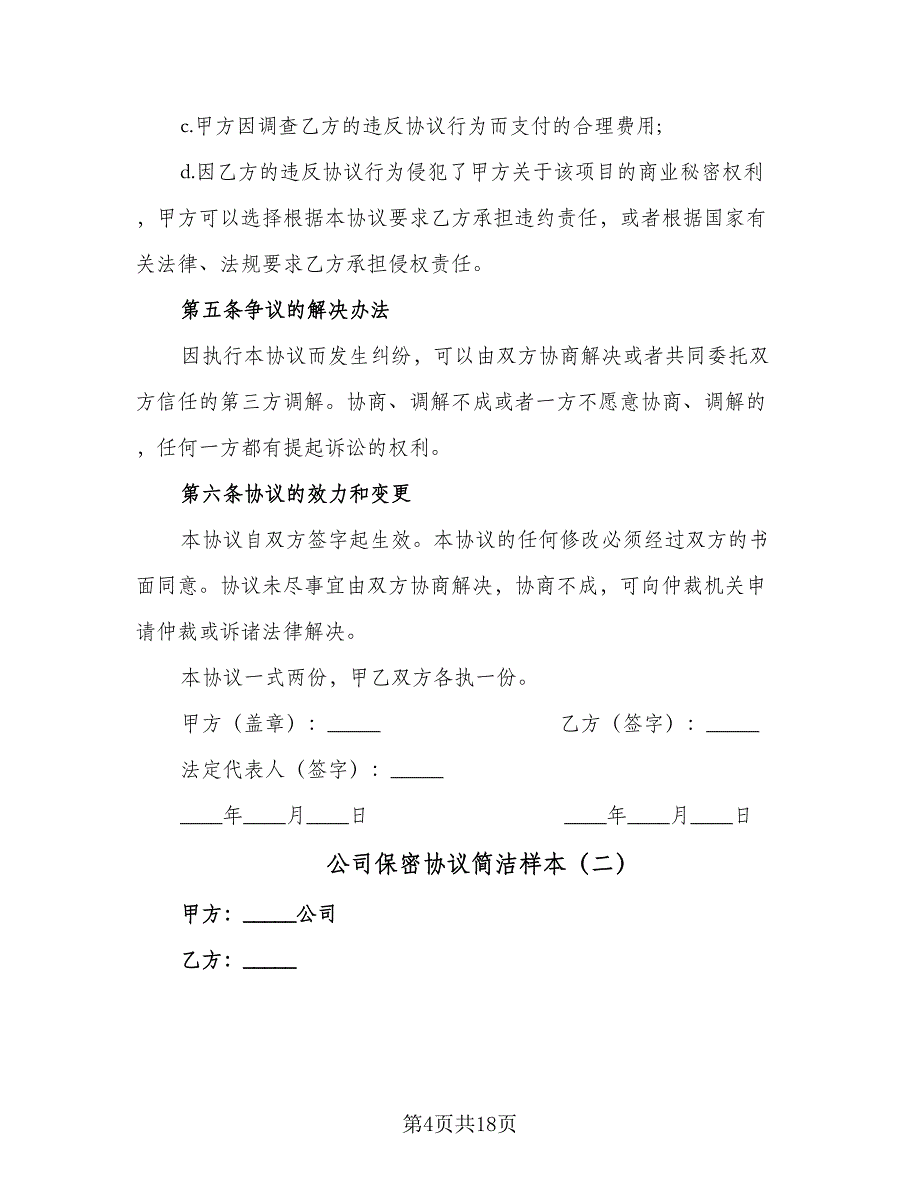 c.甲方因调查乙方的违反协议行为而支付的合理费用;
d.因乙方的违反协议行为侵犯了甲方关于该项目的商业秘密权利
，甲方可以选择根据本协议要求乙方承担违约责任，或者根据国家有
关法律、法规要求乙方承担侵权责任。
第五条争议的解决办法
因执行本协议而发生纠纷，可以由双方协商解决或者共同委托双
方信任的第三方调解。协商、调解不成或者一方不愿意协商、调解的
，任何一方都有提起诉讼的权利。
第六条协议的效力和变更
本协议自双方签字起生效。本协议的任何修改必须经过双方的书
面同意。协议未尽事宜由双方协商解决，协商不成，可向仲裁机关申
请仲裁或诉诸法律解决。
本协议一式两份，甲乙双方各执一份。
甲方（盖章）：_____ 乙方（签字）：_____
法定代表人（签字）：_____
____年____月____日 ____年____月____日
公司保密协议简洁样本（二）
甲方：_____公司
乙方：_____
第4页共18页